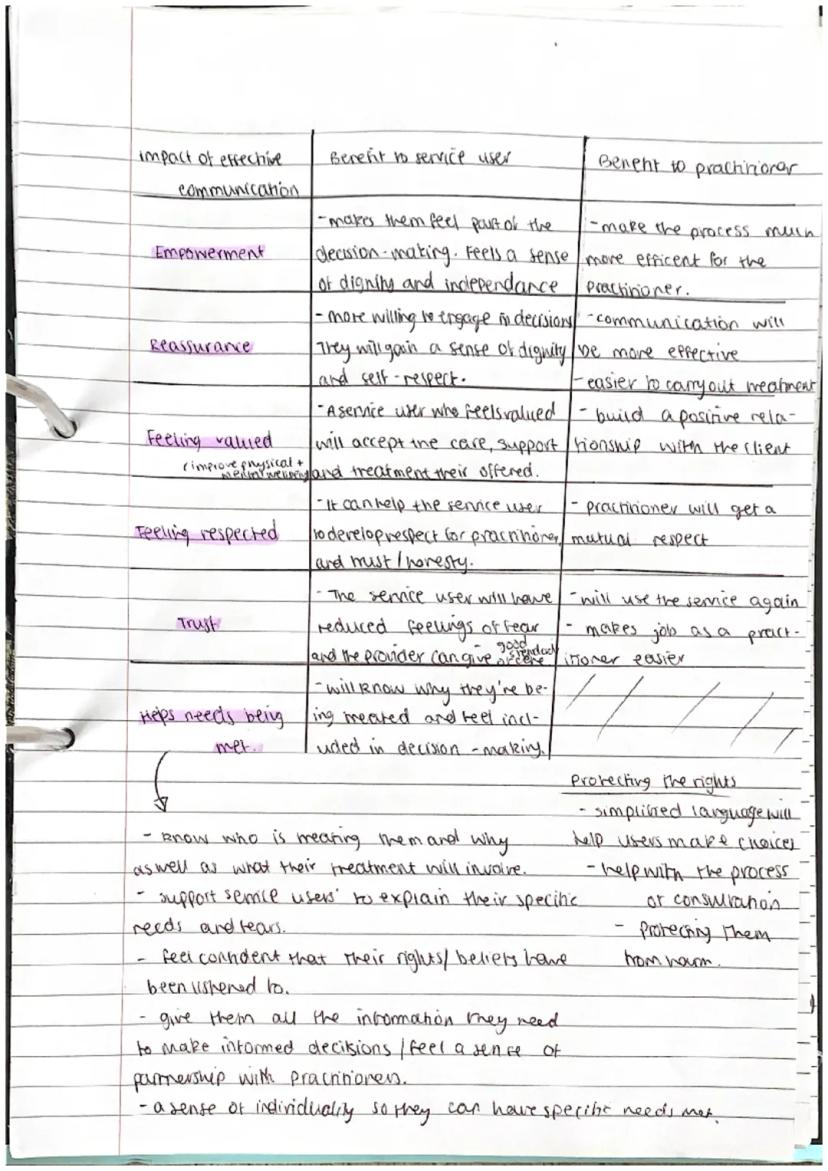 impact of effective communication
Benefit to service user
Benefit to practitioner
Empowerment
- makes them feel part of the
decision-making. Feels a sense
of dignity and independence
- make the process much
more efficent for the
practitioner.
Reassurance
- more willing to engage in decisions
They will gain a sense of dignity
and self-respect.
- communication will
be more effective
- easier to carry out treatment
Feeling valued
(improve physical +
mental wellbeing
- A service user who feels valued
will accept the care, support
and treatment their offered.
- build a positive rela-
tionship with the client
Feeling respected
- It can help the service user
to develop respect for practitioner,
and trust / honesty.
- practitioner will get a
mutual respect
Trust
- The service user will have
reduced feelings of fear
and the provider can give good
standard
of care
- will use the service again
- makes job as a pract-
itioner easier
Helps needs being
met.
- will know why they're be-
ing treated and feel incl-
uded in decision-making.
- know who is treating them and why
as well as what their treatment will involve.
- support service users' to explain their specific
needs and fears.
- feel confident that their rights/ beliefs have
been listened to.
- give them all the information they need
to make informed decitsions / feel a sense of
partnership with practitioners.
- a sense of individuality so they can have specific needs met.
Protecting the rights
- simplified language will
help users make choices
- help with the process
of consultation
- protecting them
from harm.